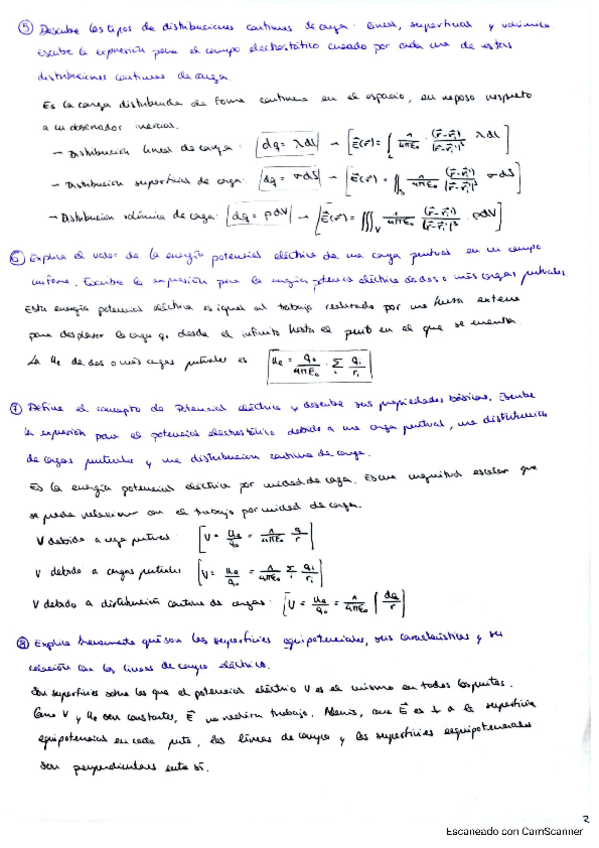 ⑤ Describe los tipos de distribuciones continuas de carga: lineal, superficial y volúmica.
Escribe la expresión para el campo electrostático creado por cada una de estas
distribuciones continuas de carga.
Es la carga distribuida de forma continua en el espacio, en reposo respecto
a un observador inercial.
→ Distribución lineal de carga: dq = λdl → E⃗(r⃗) = ∫ 1/4πε₀ · (r⃗-r⃗')/|r⃗-r⃗'|³ λdl
→ Distribución superficial de carga: dq = σdS → E⃗(r⃗) = ∬s 1/4πε₀ · (r⃗-r⃗')/|r⃗-r⃗'|³ σdS
→ Distribución volúmica de carga: dq = ρdV → E⃗(r⃗) = ∭v 1/4πε₀ · (r⃗-r⃗')/|r⃗-r⃗'|³ · ρdV
⑥ Explica el valor de la energía potencial eléctrica de una carga puntual en un campo
uniforme. Escribe la expresión para la energía potencial eléctrica de dos o más cargas puntuales
Esta energía potencial eléctrica es igual al trabajo realizado por una fuerza externa
para desplazar la carga q₀ desde el infinito hasta el punto en el que se encuentra.
La Ue de dos o más cargas puntuales es Ue = q₀/4πε₀ · Σi qi/ri
⑦ Define el concepto de Potencial eléctrico y describe sus propiedades básicas. Escribe
la expresión para el potencial electrostático debido a una carga puntual, una distribución
de cargas puntuales y una distribución continua de carga.
Es la energía potencial eléctrica por unidad de carga. Es una magnitud escalar que
se puede relacionar con el trabajo por unidad de carga.
V debido a carga puntual: V = Ue/q₀ = 1/4πε₀ q/r
V debido a cargas puntuales: V = Ue/q₀ = 1/4πε₀ Σi qi/ri
V debido a distribución continua de cargas: V = Ue/q₀ = 1/4πε₀ ∫ dq/r
⑧ Explica brevemente qué son las superficies equipotenciales, sus características y su
relación con las líneas de campo eléctrico.
Son superficies sobre las que el potencial eléctrico V es el mismo en todos los puntos.
Como V y Ue son constantes, E⃗ no realiza trabajo. Además, como E⃗ es ⊥ a la superficie
equipotencial en cada punto, las líneas de campo y las superficies equipotenciales
son perpendiculares entre sí.
2
Escaneado con CamScanner